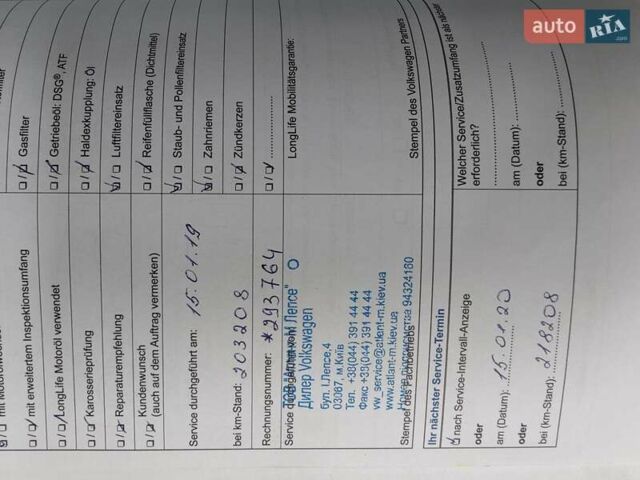 auto RIA.com
mit erweitertem Inspektionsumfang
LongLife Motoröl verwendet
Karosserieprüfung
Reparaturempfehlung
Kundenwunsch
(auch auf dem Auftrag vermerken)
Gasfilter
Getriebeöl: DSG®, ATF
Haldexkupplung: Öl
Luftfiltereinsatz
Reifenfüllflasche (Dichtmittel)
Staub- und Pollenfiltereinsatz
Zahnriemen
Zündkerzen
Service durchgeführt am: 15.01.19
bei km-Stand: 203208
Rechnungsnummer: *293764
LongLife Mobilitätsgarantie:
Дилер Volkswagen
бул. І.Лепсе,4
03067, м.Київ
Тел. +38(044) 391 44 44
Факс +38(044) 391 44 44
vw_service@atlant-m.kiev.ua
www.atlant-m.kiev.ua
94324180
Stempel des Fachbetriebs
Stempel des Volkswagen Partners
Ihr nächster Service-Termin
nach Service-Intervall-Anzeige
oder
am (Datum): 15.01.20
oder
bei (km-Stand): 218208
Welcher Service/Zusatzumfang ist als nächster
erforderlich?
am (Datum):
oder
bei (km-Stand):